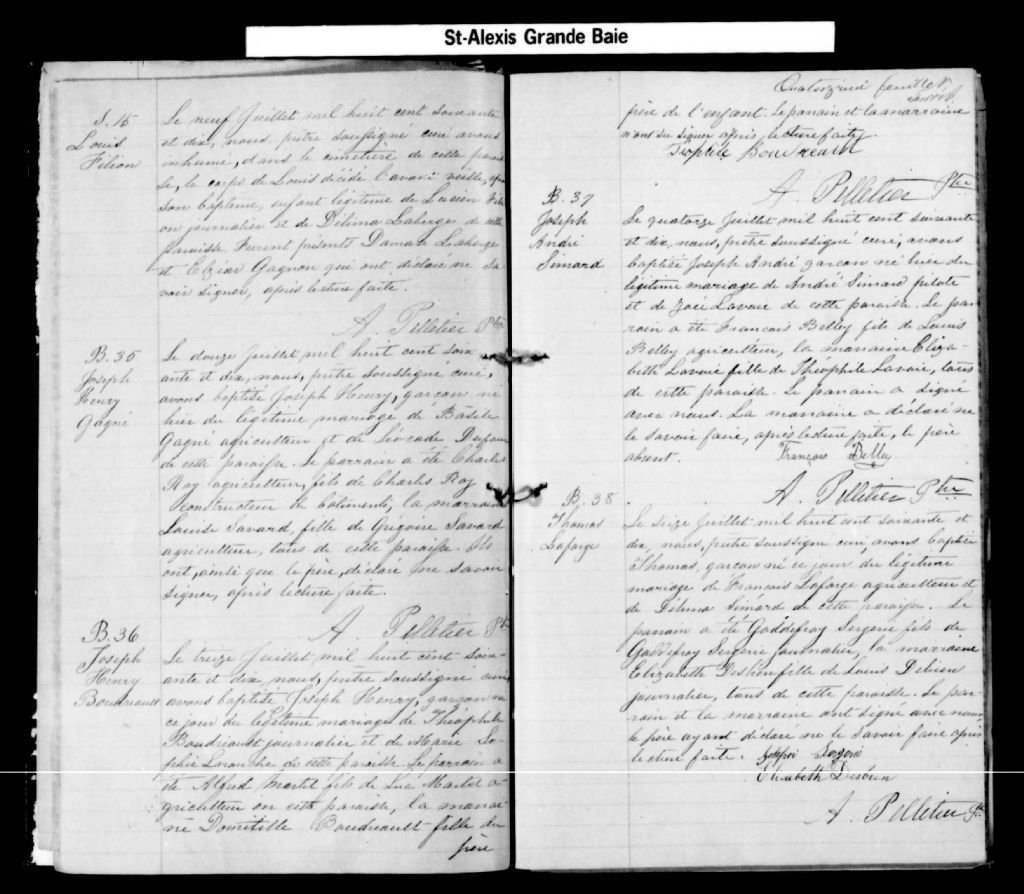 St-Alexis Grande Baie
S. 15
Louis
Filion
Le neuf Juillet mil huit cent soixante
et dix, nous, prêtre soussigné curé avons
inhumé, dans le cimetière de cette parois
se, le corps de Louis décédé l'avant veille, après
son baptême, enfant légitime de Lucien Fili
on journalier et de Délima Laberge de cette
paroisse. Furent présents Damase Laberge
et Elzéar Gagnon qui ont déclaré ne sa
voir signer, après lecture faite.
A. Pelletier Ptre
B. 35
Joseph
Henry
Gagné
Le douze Juillet mil huit cent soix
ante et dix, nous, prêtre soussigné curé,
avons baptisé Joseph Henry, garçon né
hier du légitime mariage de Basile
Gagné agriculteur et de Léocade Dufour
de cette paroisse. Le parrain a été Charles
Roy agriculteur, fils de Charles Roy
constructeur de bâtiments, la marraine
Louise Savard, fille de Grégoire Savard
agriculteur, tous de cette paroisse. Ils
ont, ainsi que le père, déclaré ne savoir
signer, après lecture faite.
A Pelletier Ptre
B. 36
Joseph
Henry
Boudreault
Le treize Juillet mil huit cent soix-
ante et dix, nous, prêtre soussigné curé,
avons baptisé Joseph Henry, garçon né
ce jour du légitime mariage de Théophile
Boudriault journalier et de Marie So
phie Larouche de cette paroisse. Le parrain a
été Alfred Martel fils de Luc Martel a-
griculteur en cette paroisse, la marrai
ne Domitille Boudreault fille du
père
Quatorzième feuillet
père de l'enfant. Le parrain et la marraine
n'ont su signer après lecture faite
Téoptile Boudreault
A. Pelletier Ptre
B. 37
Joseph
André
Simard
Le quatorze Juillet mil huit cent soixante
et dix, nous, prêtre soussigné curé, avons
baptisé Joseph André garçon né hier du
légitime mariage de André Simard pilote
et de Zoé Lavoie de cette paroisse. Le par
rain a été Francois Belley fils de Louis
Belley agriculteur, la marraine Eliza-
beth Lavoie fille de Théophile Lavoie, tous
de cette paroisse. Le parrain a signé
avec nous. La marraine a déclaré ne
le savoir faire, après lecture faite, le père
absent. François Belley
A. Pelletier Ptre
B. 38
Thomas
Laforge
Le seize Juillet mil huit cent soixante et
dix, nous, prêtre soussigné curé, avons baptisé
Thomas, garçon né ce jour du légitime
mariage de François Laforge agriculteur et
de Délima Simard de cette paroisse. Le
parrain a été Goddefroy Sergerie fils de
Goddefroy Sergerie journalier, la marraine
Elizabeth Desbien fille de Louis Debien
journalier, tous de cette paroisse. Le par-
rain et la marraine ont signé avec nous,
le père ayant déclaré ne le savoir faire après
lecture faite. Godefroi Sergerie
Elisabeth Desbien
A. Pelletier Ptre